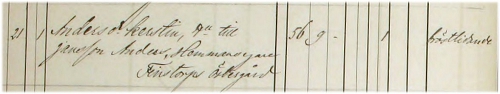 21 1 Andersdr Kerstin, Hu till 56 9 - 1 bröstlidande
Jansson Anders, Hemmansegare
Finstorps Östergård